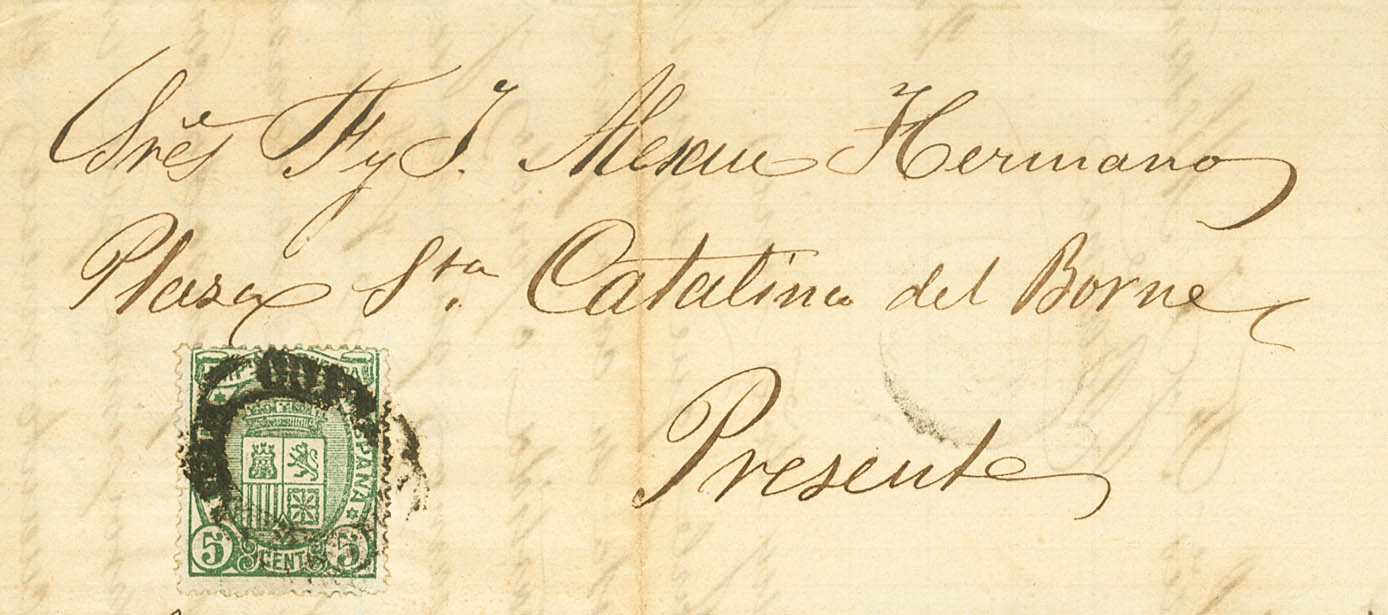 Sres F y J. Alexue Hermano
Plaza Sta. Catalina del Borne
Presente
ESPAÑA
5 CENTS 5